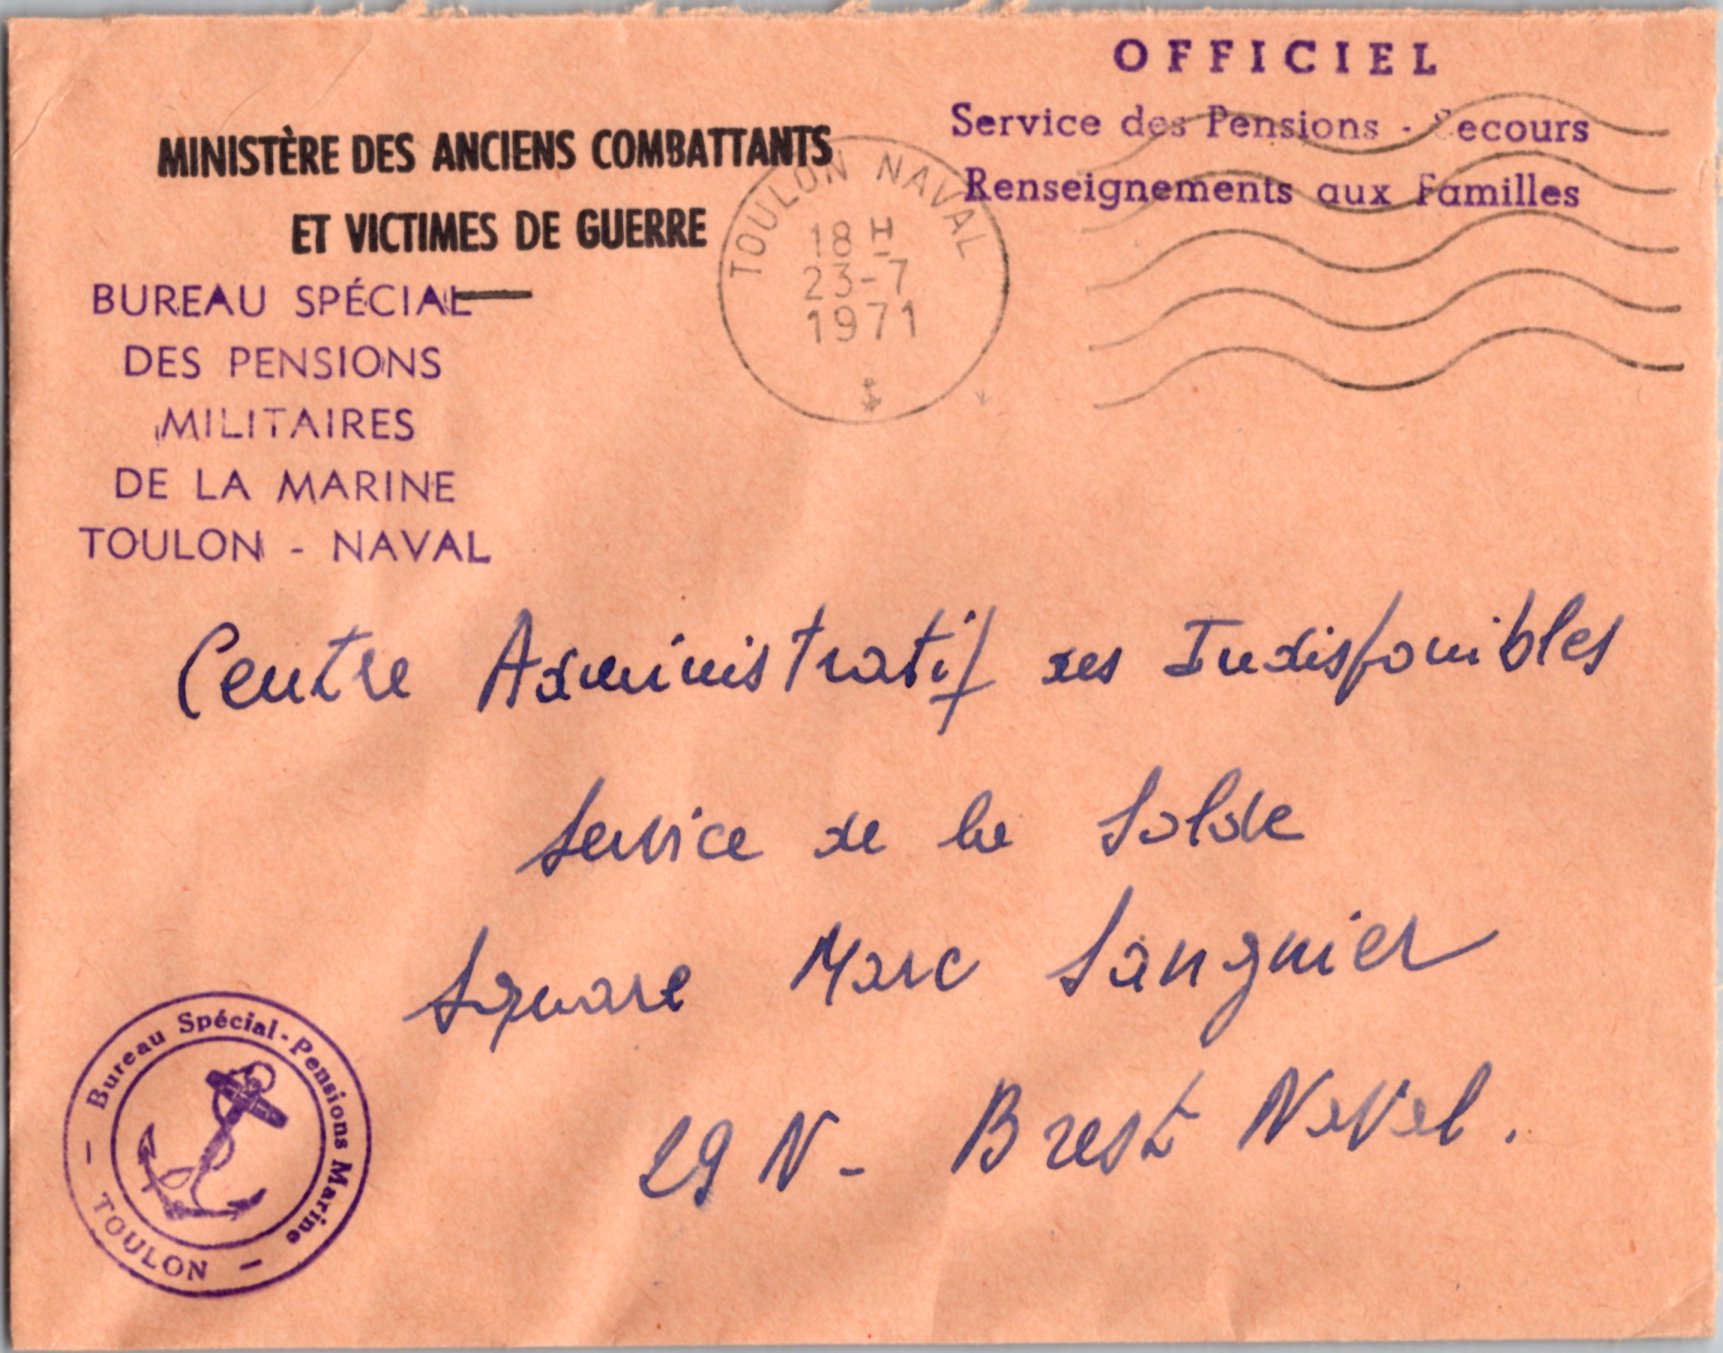 OFFICIEL
Service des Pensions - Secours
Renseignements aux Familles
MINISTÈRE DES ANCIENS COMBATTANTS
ET VICTIMES DE GUERRE
BUREAU SPÉCIAL
DES PENSIONS
MILITAIRES
DE LA MARINE
TOULON - NAVAL
TOULON NAVAL
18 H
23-7
1971
Centre Administratif des Indisponibles
Service de la Solde
Square Marc Sangnier
29 N - Brest Naval.
Bureau Spécial - Pensions Marine
— TOULON —